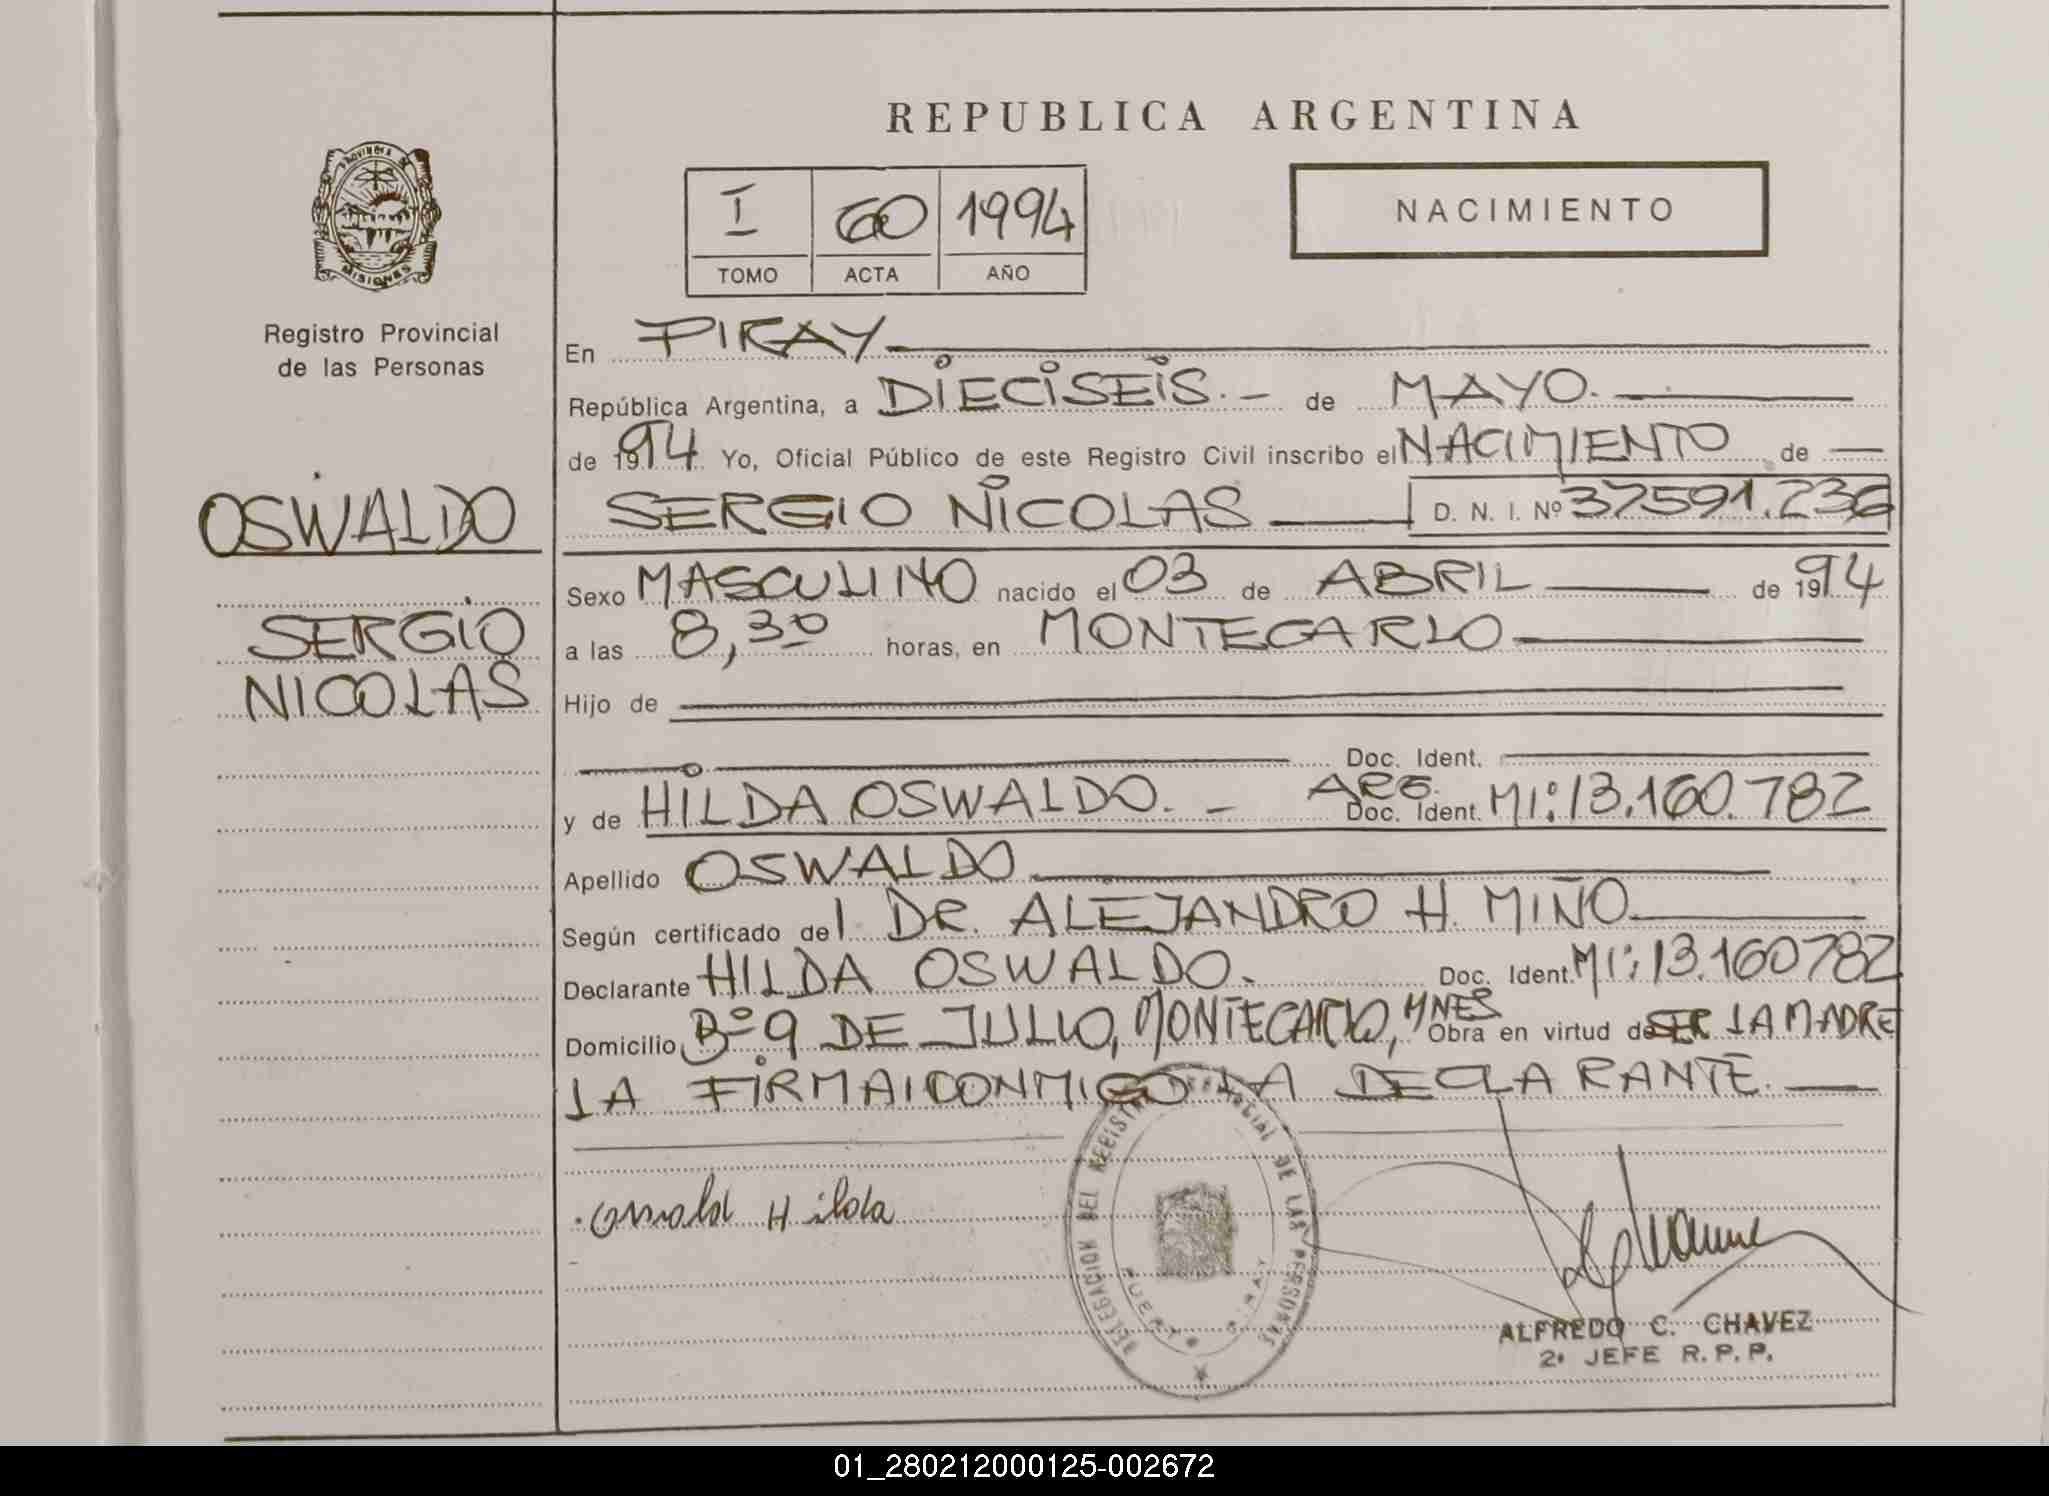 REPUBLICA ARGENTINA
PROVINCIA DE
MISIONES
Registro Provincial
de las Personas
I 60 1994
TOMO ACTA AÑO
NACIMIENTO
OSWALDO
SERGIO
NICOLAS
En PIRAY
República Argentina, a DIECISEIS.- de MAYO.
de 1994 Yo, Oficial Público de este Registro Civil inscribo el NACIMIENTO de
SERGIO NICOLAS D. N. I. Nº 37591.236
Sexo MASCULINO nacido el 03 de ABRIL de 1994
a las 8,30 horas, en MONTECARLO
Hijo de
Doc. Ident.
y de HILDA OSWALDO. - ARG. Doc. Ident. MI: 13.160.782
Apellido OSWALDO
Según certificado del DR. ALEJANDRO H. MIÑO
Declarante HILDA OSWALDO. Doc. Ident. MI: 13.160782
Domicilio Bº 9 DE JULIO, MONTECARLO, MNES Obra en virtud de SER LA MADRE
LA FIRMA CONMIGO LA DECLARANTE.
Oswald Hilda
DELEGACION DEL REGISTRO PROVINCIAL DE LAS PERSONAS
PUERTO PIRAY
ALFREDO C. CHAVEZ
2º JEFE R.P.P.
01_280212000125-002672